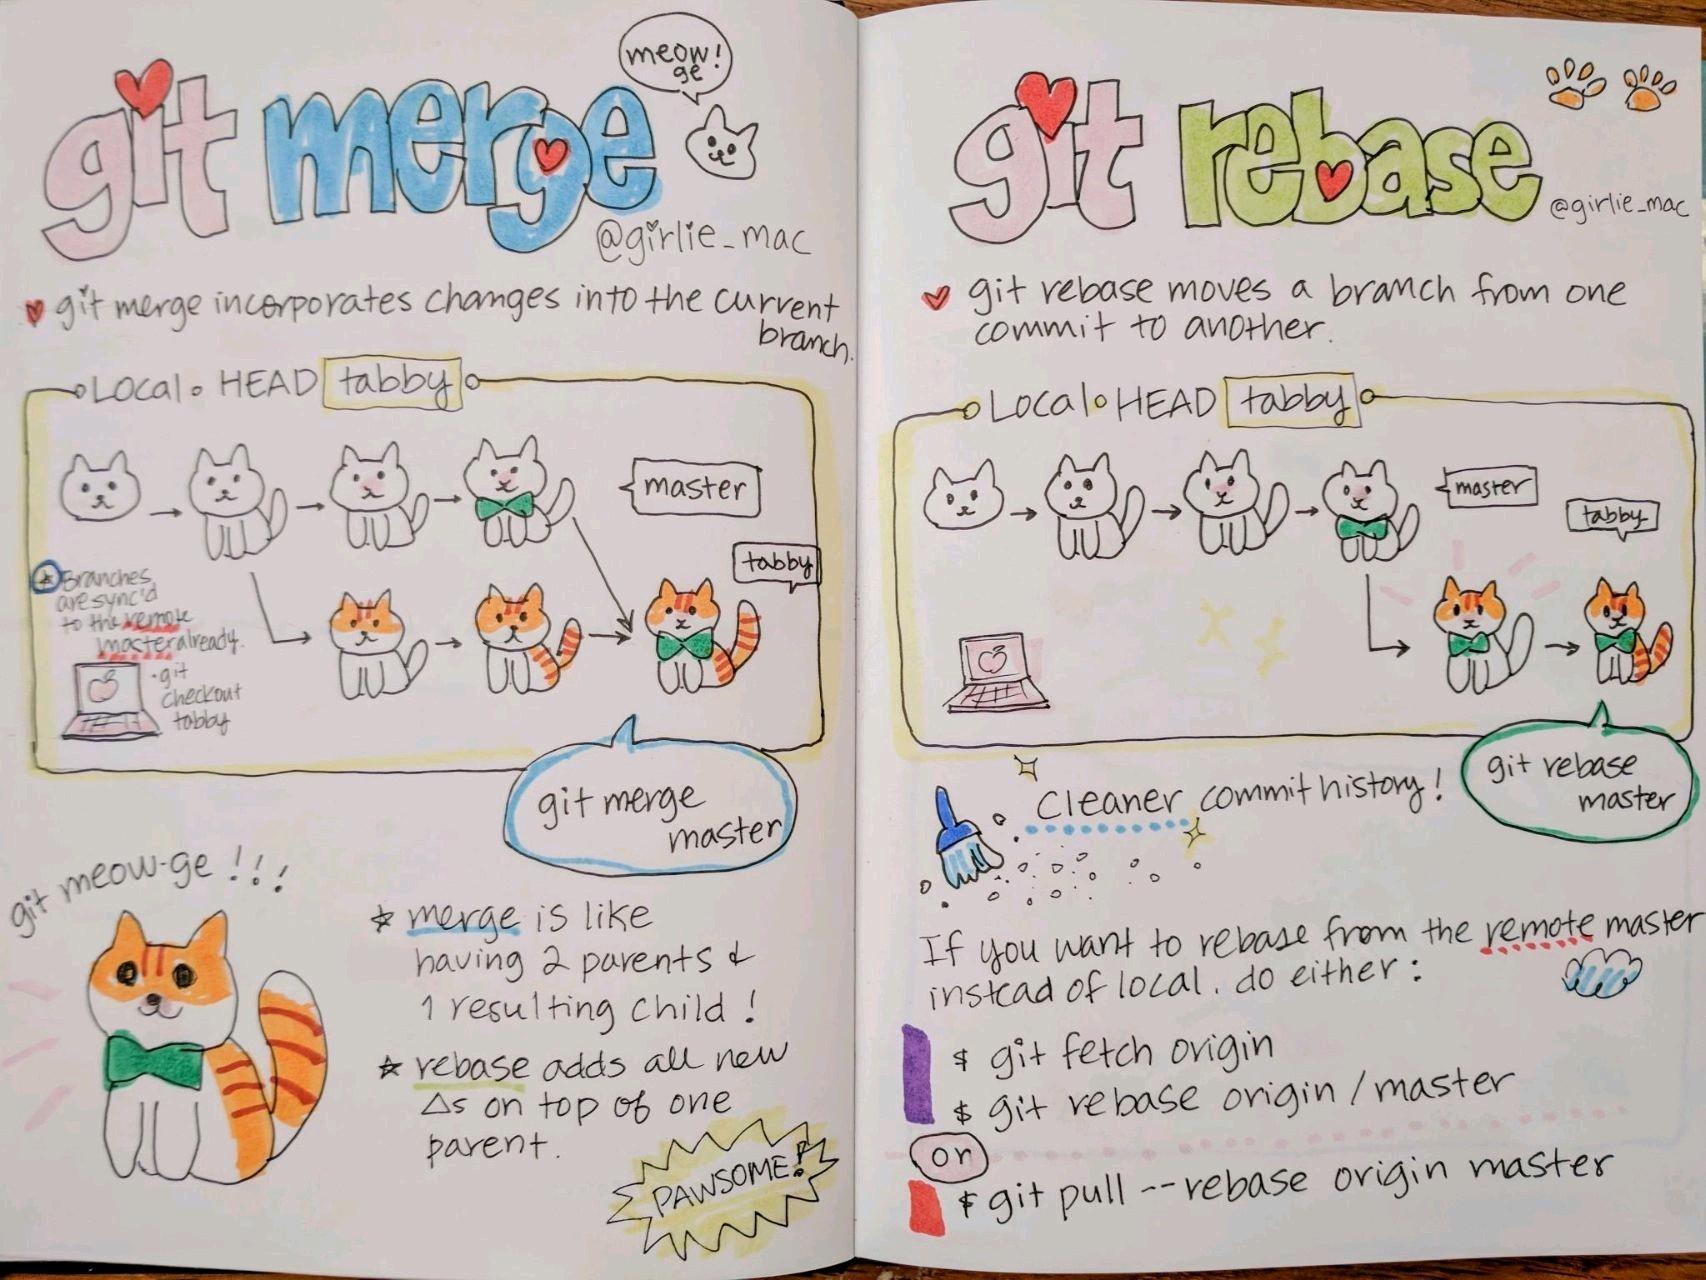 git merge
meow!
ge
@girlie_mac
git merge incorporates changes into the current
branch.
Local HEAD tabby
master
tabby
Branches
are sync'd
to the remote
master already.
• git
checkout
tabby
git merge
master
git meow-ge!!!
merge is like
having 2 parents &
1 resulting child!
rebase adds all new
Δs on top of one
parent.
PAWSOME!
git rebase
@girlie_mac
git rebase moves a branch from one
commit to another.
Local HEAD tabby
master
tabby
git rebase
master
Cleaner commit history!
If you want to rebase from the remote master
instead of local. do either:
$ git fetch origin
$ git rebase origin/master
or
$ git pull --rebase origin master